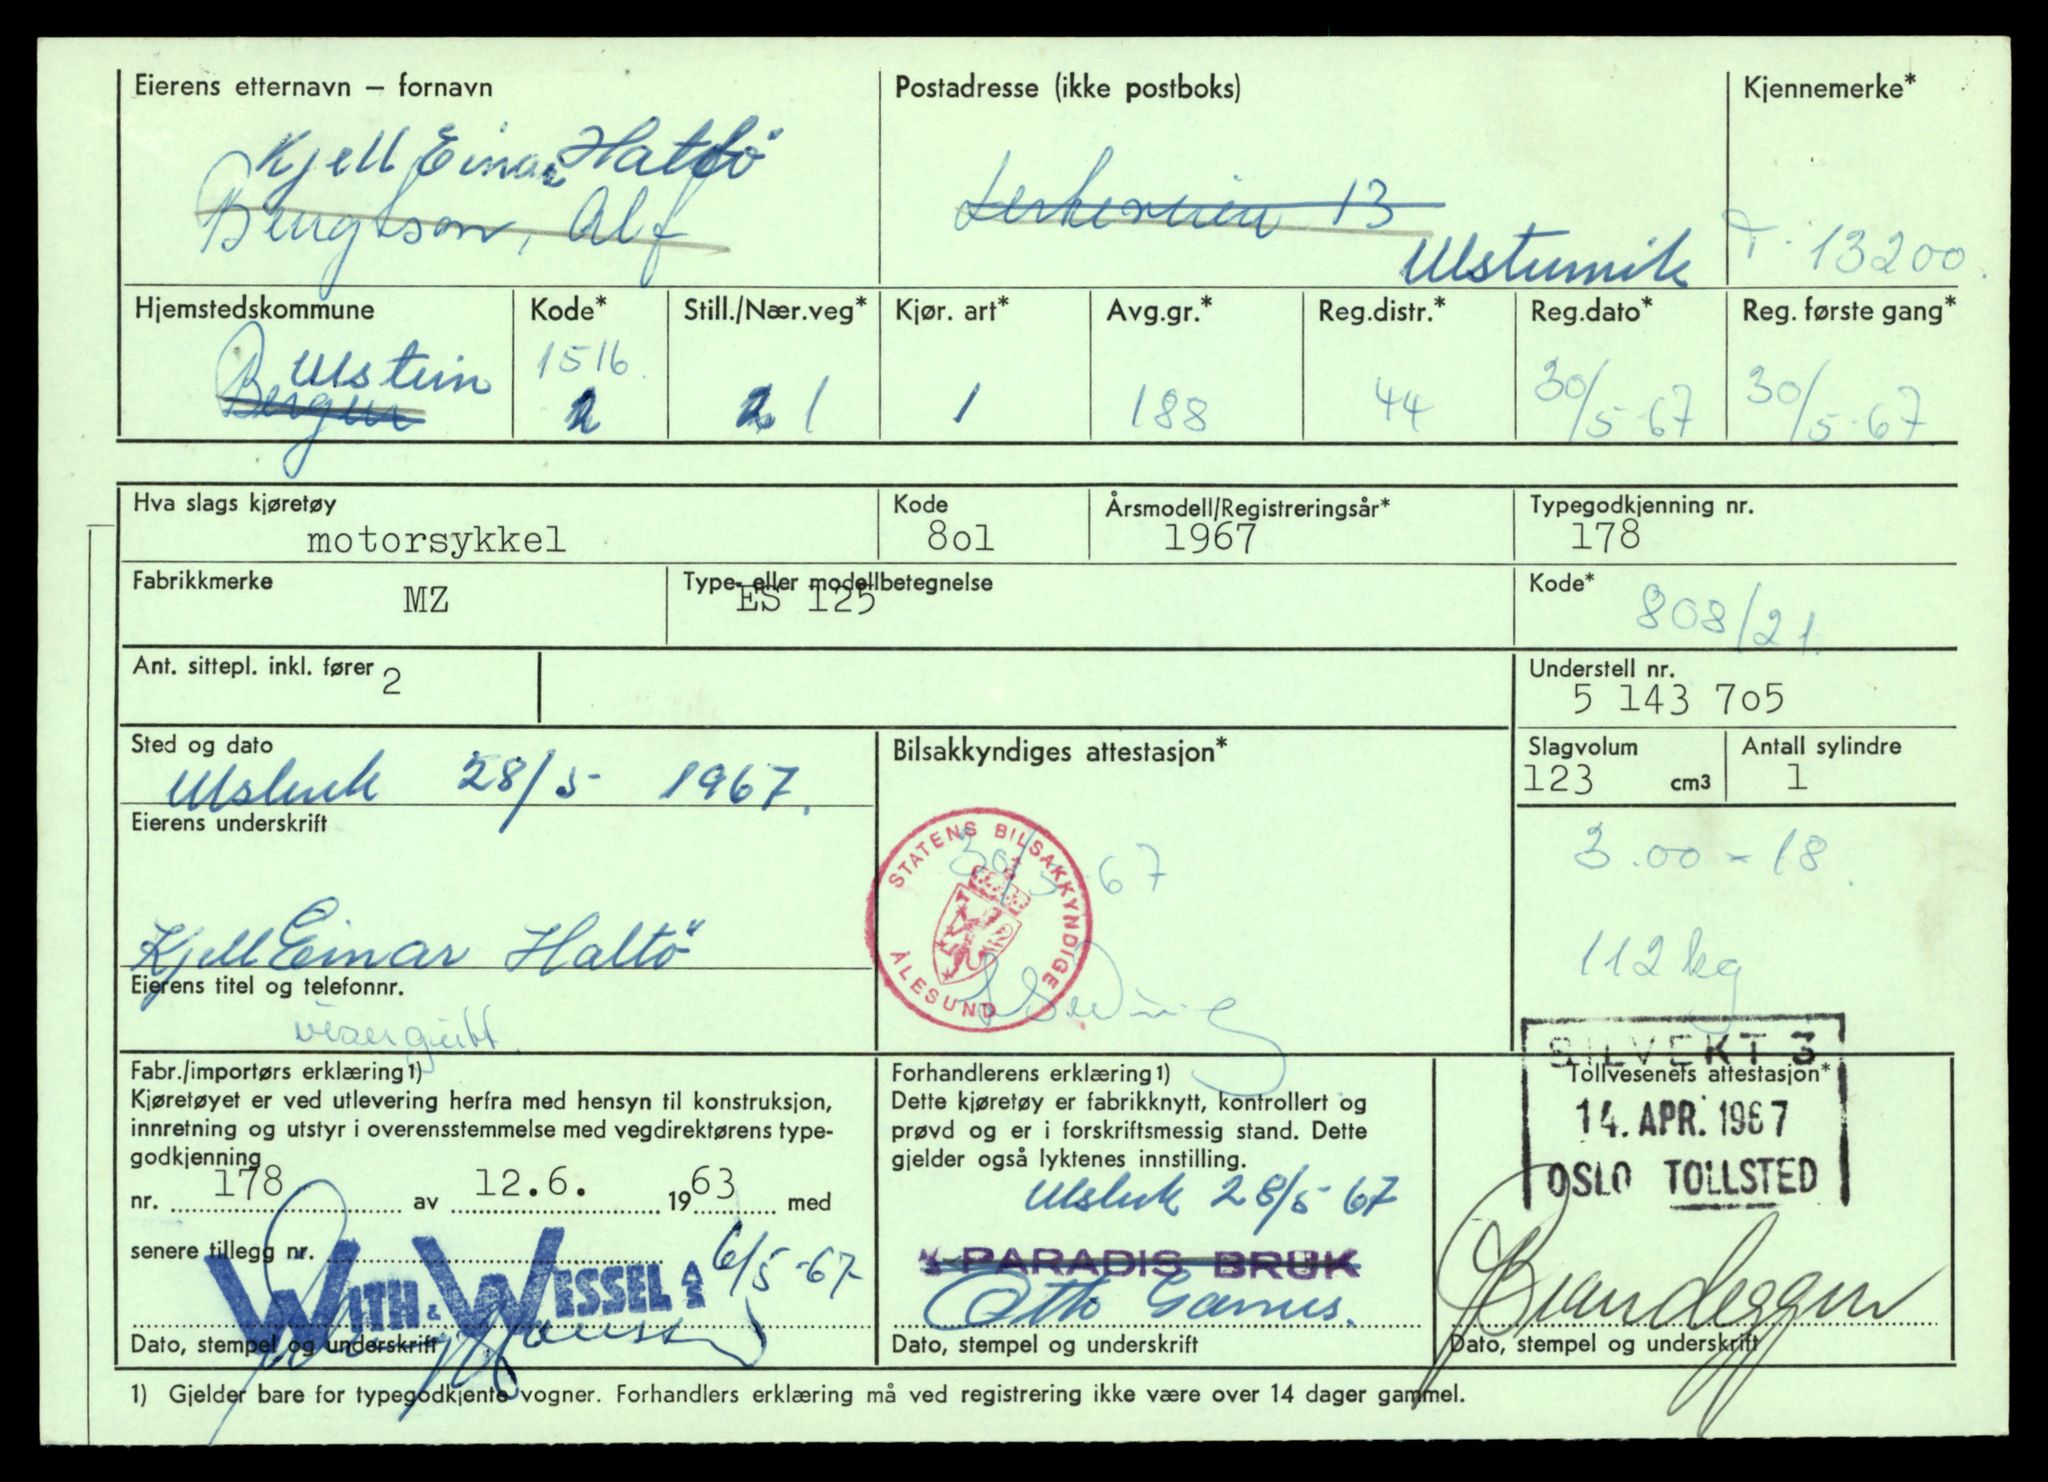 Eierens etternavn – fornavn
Postadresse (ikke postboks)
Kjennemerke*
Kjell Einar Haltö
Bengtson, Alf
13
Ulsteinvik
T-13200.
Hjemstedskommune
Kode*
Still./Nær.veg*
Kjør. art*
Avg.gr.*
Reg.distr.*
Reg.dato*
Reg. første gang*
Ulstein
Bergen
1516.
2
2 1
1
188
44
30/5-67
30/5-67
Hva slags kjøretøy
Kode
Årsmodell/Registreringsår*
Typegodkjenning nr.
motorsykkel
8o1
1967
178
Fabrikkmerke
Type- eller modellbetegnelse
Kode*
MZ
ES 125
808/21.
Ant. sittepl. inkl. fører
2
Understell nr.
5 143 7o5
Sted og dato
Bilsakkyndiges attestasjon*
Slagvolum
Antall sylindre
28/5- 1967.
123 cm3
1
Eierens underskrift
3.00 - 18.
30/5-67
STATENS BILSAKKYNDIGE
ÅLESUND
Kjell Einar Haltö
112 kg
Eierens titel og telefonnr.
visergutt.
Fabr./importørs erklæring1)
Kjøretøyet er ved utlevering herfra med hensyn til konstruksjon,
innretning og utstyr i overensstemmelse med vegdirektørens type-
godkjenning
nr. 178 av 12.6. 1963 med
senere tillegg nr.
6/5-67
WITH & WESSEL A/S
Dato, stempel og underskrift
Forhandlerens erklæring1)
Dette kjøretøy er fabrikknytt, kontrollert og
prøvd og er i forskriftsmessig stand. Dette
gjelder også lyktenes innstilling.
28/5-67
PARADIS BRUK
Otto
Dato, stempel og underskrift
Tollvesenets attestasjon*
14. APR. 1967
OSLO TOLLSTED
Dato, stempel og underskrift
1) Gjelder bare for typegodkjente vogner. Forhandlers erklæring må ved registrering ikke være over 14 dager gammel.